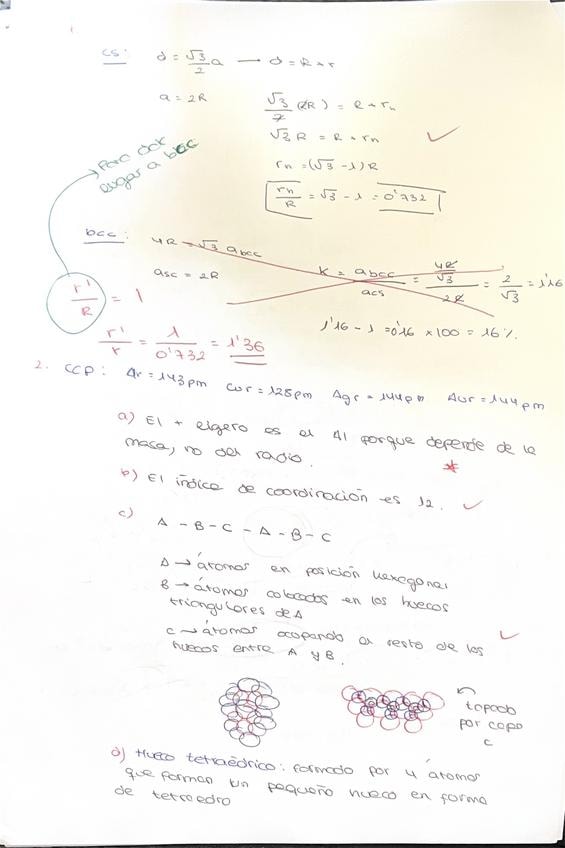 CS: d = √3/2 a → d = R + r
a = 2R
√3/2 (2R) = R + rn
√3 R = R + rn
rn = (√3 - 1) R
rn/R = √3 - 1 = 0'732
Para dar
lugar a bcc
bcc: 4R = √3 abcc
asc = 2R
K = abcc/acs = (4R/√3)/2R = 2/√3 = 1'16
r'/R = 1
1'16 - 1 = 0'16 x 100 = 16%.
r'/r = 1/0'732 = 1'36
2. CCP: Alr = 143pm Cur = 128pm Agr = 144pm Aur = 144pm
a) El + ligero es el Al porque depende de la
masa, no del radio.
*
b) El índice de coordinación es 12.
c)
A - B - C - A - B - C
A → átomos en posición hexagonal
B → átomos colocados en los huecos
triangulares de A
C → átomos ocupando el resto de los
huecos entre A y B.
tapado
por capa
C
d) Hueco tetraédrico: formado por 4 átomos
que forman un pequeño hueco en forma
de tetraedro